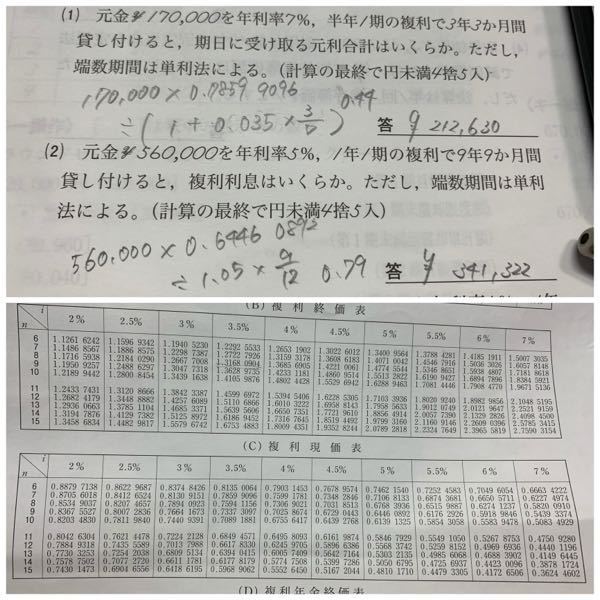 (1) 元金¥170,000を年利率7%，半年/期の複利で3年3か月間
貸し付けると，期日に受け取る元利合計はいくらか。ただし，
端数期間は単利法による。(計算の最終で円未満4捨5入)
170,000 × 0.7859 9096
÷(1 + 0.035 × 3/6) 0.44
答 ¥ 212,630
(2) 元金¥560,000を年利率5%，/年/期の複利で9年9か月間
貸し付けると，複利利息はいくらか。ただし，端数期間は単利
法による。(計算の最終で円未満4捨5入)
560,000 × 0.6446 0892
÷ 1.05 × 9/12 0.79
答 ¥ 341,322
(B) 複利終価表
n i 2% 2.5% 3% 3.5% 4% 4.5% 5% 5.5% 6% 7%
6 1.1261 6242 1.1596 9342 1.1940 5230 1.2292 5533 1.2653 1902 1.3022 6012 1.3400 9564 1.3788 4281 1.4185 1911 1.5007 3035
7 1.1486 8567 1.1886 8575 1.2298 7387 1.2722 7926 1.3159 3178 1.3608 6183 1.4071 0042 1.4546 7916 1.5036 3026 1.6057 8148
8 1.1716 5938 1.2184 0290 1.2667 7008 1.3168 0904 1.3685 6905 1.4221 0061 1.4774 5544 1.5346 8651 1.5938 4807 1.7181 8618
9 1.1950 9257 1.2488 6297 1.3047 7318 1.3628 9735 1.4233 1181 1.4860 9514 1.5513 2822 1.6190 9427 1.6894 7896 1.8384 5921
10 1.2189 9442 1.2800 8454 1.3439 1638 1.4105 9876 1.4802 4428 1.5529 6942 1.6288 9463 1.7081 4446 1.7908 4770 1.9671 5136
11 1.2433 7431 1.3120 8666 1.3842 3387 1.4599 6972 1.5394 5406 1.6228 5305 1.7103 3936 1.8020 9240 1.8982 9856 2.1048 5195
12 1.2682 4179 1.3448 8882 1.4257 6089 1.5110 6866 1.6010 3222 1.6958 8143 1.7958 5633 1.9012 0749 2.0121 9647 2.2521 9159
13 1.2936 0663 1.3785 1104 1.4685 3371 1.5639 5606 1.6650 7351 1.7721 9610 1.8856 4914 2.0057 7390 2.1329 2826 2.4098 4500
14 1.3194 7876 1.4129 7382 1.5125 8972 1.6186 9452 1.7316 7645 1.8519 4492 1.9799 3160 2.1160 9146 2.2609 0396 2.5785 3415
15 1.3458 6834 1.4482 9817 1.5579 6742 1.6753 4883 1.8009 4351 1.9352 8244 2.0789 2818 2.2324 7649 2.3965 5819 2.7590 3154
(C) 複利現価表
n i 2% 2.5% 3% 3.5% 4% 4.5% 5% 5.5% 6% 7%
6 0.8879 7138 0.8622 9687 0.8374 8426 0.8135 0064 0.7903 1453 0.7678 9574 0.7462 1540 0.7252 4583 0.7049 6054 0.6663 4222
7 0.8705 6018 0.8412 6524 0.8130 9151 0.7859 9096 0.7599 1781 0.7348 2846 0.7106 8133 0.6874 3681 0.6650 5711 0.6227 4974
8 0.8534 9037 0.8207 4657 0.7894 0923 0.7594 1156 0.7306 9021 0.7031 8513 0.6768 3936 0.6515 9887 0.6274 1237 0.5820 0910
9 0.8367 5527 0.8007 2836 0.7664 1673 0.7337 3097 0.7025 8674 0.6729 0443 0.6446 0892 0.6176 2926 0.5918 9846 0.5439 3374
10 0.8203 4830 0.7811 9840 0.7440 9391 0.7089 1881 0.6755 6417 0.6439 2768 0.6139 1325 0.5854 3058 0.5583 9478 0.5083 4929
11 0.8042 6304 0.7621 4478 0.7224 2128 0.6849 4571 0.6495 8093 0.6161 9874 0.5846 7929 0.5549 1050 0.5267 8753 0.4750 9280
12 0.7884 9318 0.7435 5589 0.7013 7988 0.6617 8330 0.6245 9705 0.5896 6386 0.5568 3742 0.5259 8152 0.4969 6936 0.4440 1196
13 0.7730 3253 0.7254 2038 0.6809 5134 0.6394 0415 0.6005 7409 0.5642 7164 0.5303 2135 0.4985 6068 0.4688 3902 0.4149 6445
14 0.7578 7502 0.7077 2720 0.6611 1781 0.6177 8179 0.5774 7508 0.5399 7286 0.5050 6795 0.4725 6937 0.4423 0096 0.3878 1724
15 0.7430 1473 0.6904 6556 0.6418 6195 0.5968 9062 0.5552 6450 0.5167 2044 0.4810 1710 0.4479 3305 0.4172 6506 0.3624 4602
(D) 複利年金終価表